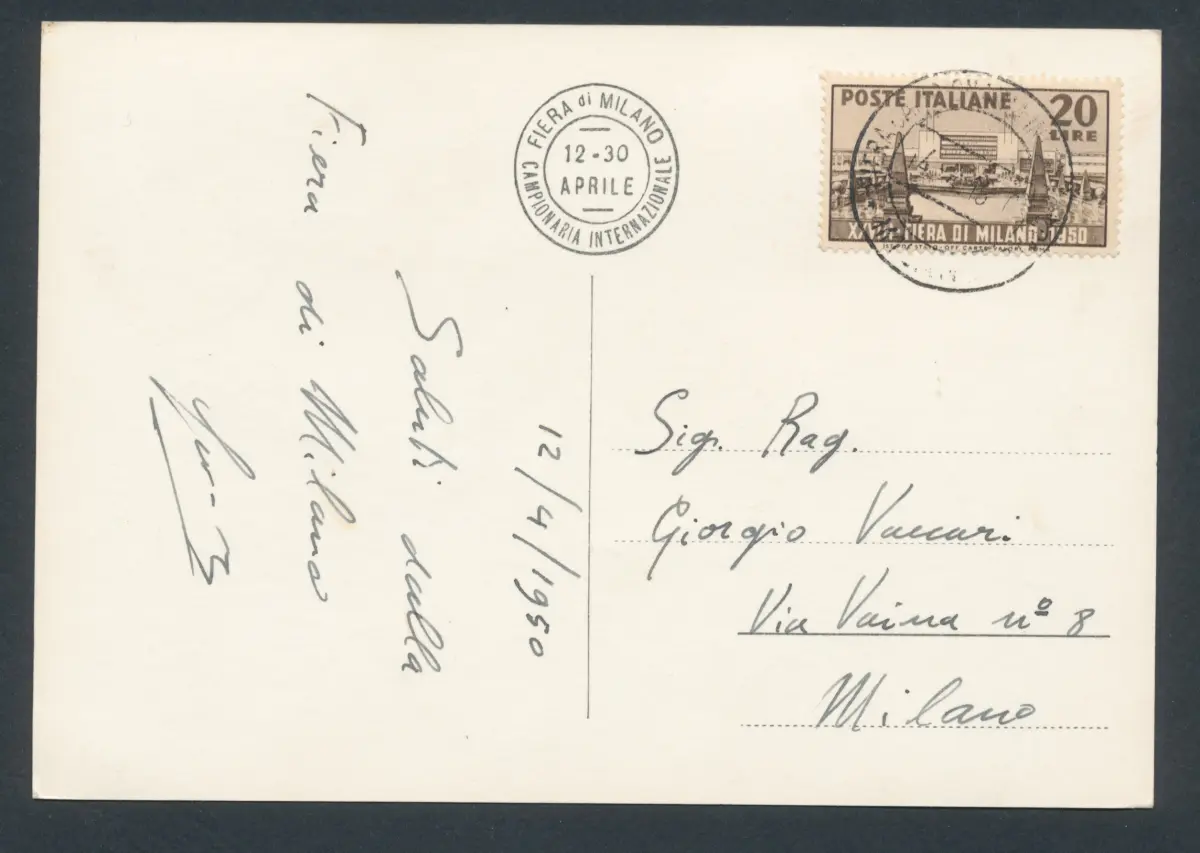 FIERA di MILANO
CAMPIONARIA INTERNAZIONALE
12-30
APRILE
POSTE ITALIANE
20
LIRE
FIERA DI MILANO 1950
12/4/1950
Saluti dalla
Fiera di Milano
Sig. Rag.
Giorgio Vaccari
Via Vaina nº 8
Milano